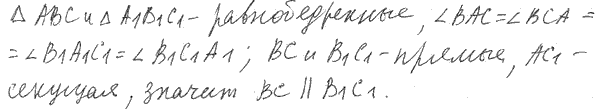 △ ABC и △ A1B1C1 - равнобедренные, ∠BAC=∠BCA =
= ∠B1A1C1=∠B1C1A1; BC и B1C1-прямые, AC1-
секущая, значит BC ∥ B1C1.